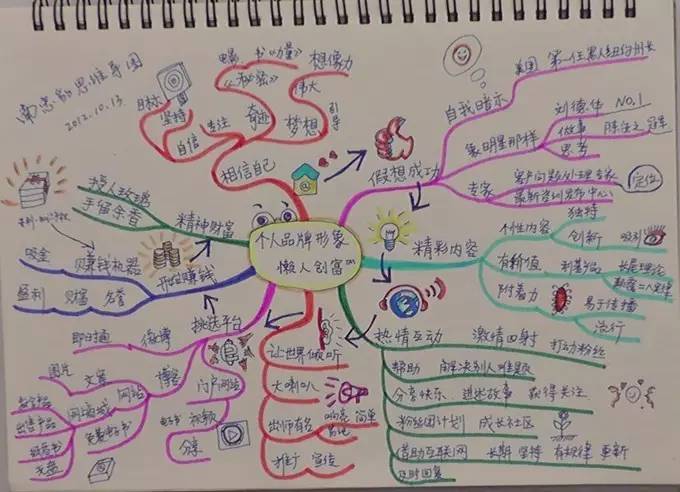 思维导图
2012.10.13
个人品牌形象
懒人创富
相信自己
目标
坚持
自信
专注
奇迹
梦想
引导
伟大
想象力
电影 书《力量》
《秘密》
假想成功
自我暗示
美国 第一任黑人纽约州长
象明星那样
刘德华 NO.1
做事
思考
专家
客户问题处理专家
最新资讯发布中心
定位
精彩内容
个性内容
独特
创新 吸引
有价值
利基产品
长尾理论
附着力
易于传播
流行
热情互动
激情四射 打动粉丝
帮助 解决别人难题
分享快乐 讲述故事 获得关注
粉丝团计划 成长社区
借助互联网 长期 坚持 有规律 更新
及时回复
让世界倾听
大喇叭
响亮 简单
出师有名
推广 宣传
挑选平台
微博
即时通
博客
文章
图片
网站
门户网站
视频
电子书
分享
免费电子书
开始赚钱
赚钱机器
吸金
盈利 财富 名誉
精神财富
授人玫瑰
手留余香